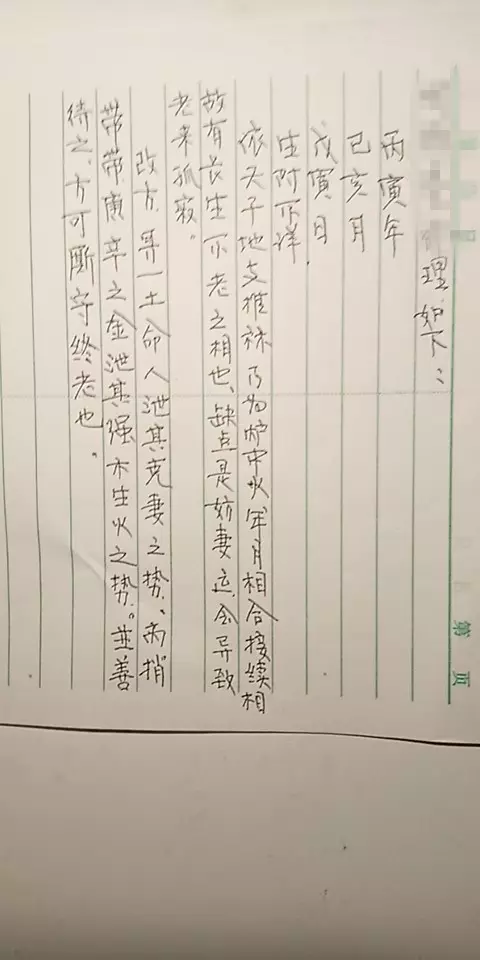 第 页
理如下：
丙寅年
己亥月
戊寅日
生时不详.
依天干地支推 乃为炉中火年月相合接续相
故有长生不老之相也、缺点是妨妻运,会导致
老来孤寂。
改方,寻一土命人泄其克妻之势、而捎
带带庚辛之金泄其强木生火之势。并善
待之、方可断守终老也。